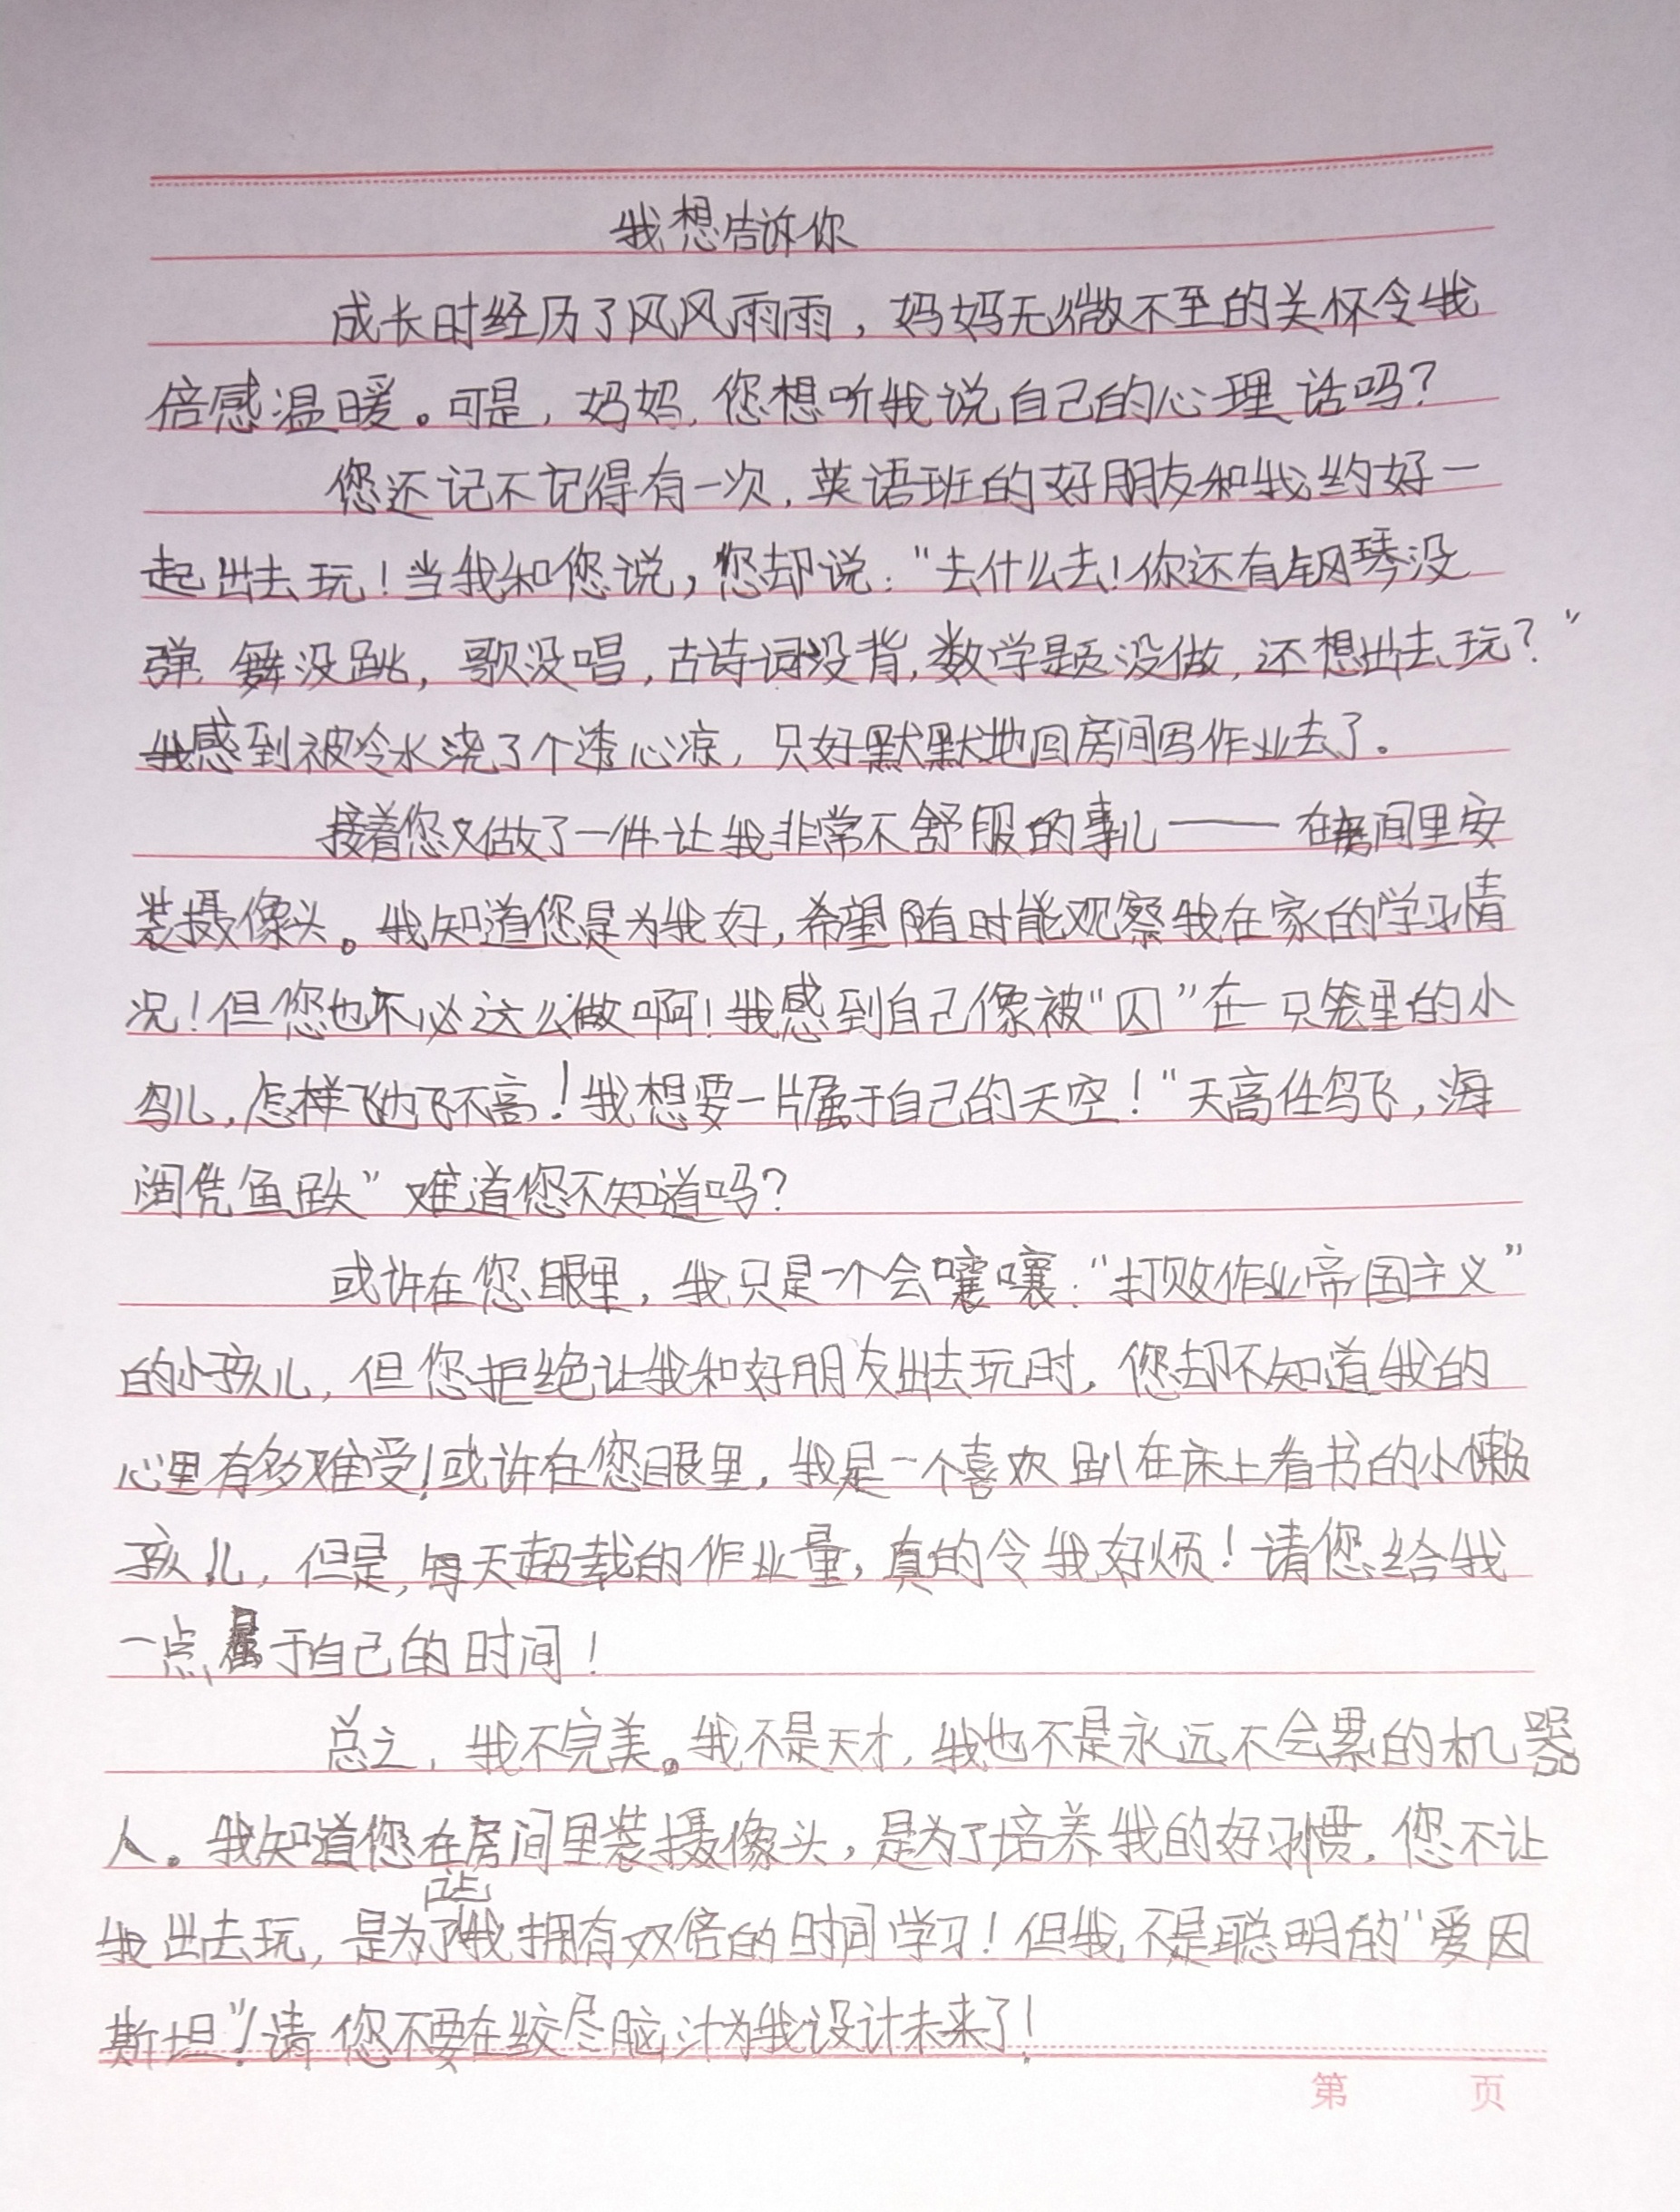 我想告诉你
成长时经历了风风雨雨，妈妈无微不至的关怀令我
倍感温暖。可是，妈妈，您想听我说自己的心理话吗？
您还记不记得有一次，英语班的好朋友和我约好一
起出去玩！当我和您说，您却说：“去什么去！你还有钢琴没
弹，舞没跳，歌没唱，古诗词没背，数学题没做，还想出去玩？”
我感到被冷水浇了个透心凉，只好默默地回房间写作业去了。
接着您又做了一件让我非常不舒服的事儿——在房间里安
装摄像头。我知道您是为我好，希望随时能观察我在家的学习情
况！但您也不必这么做啊！我感到自己像被“囚”在一只笼里的小
鸟儿，怎样飞也飞不高！我想要一片属于自己的天空！“天高任鸟飞，海
阔凭鱼跃”难道您不知道吗？
或许在您眼里，我只是一个会嚷嚷：“打败作业帝国主义”
的小孩儿，但您拒绝让我和好朋友出去玩时，您却不知道我的
心里有多难受！或许在您眼里，我是一个喜欢趴在床上看书的小懒
孩儿，但是，每天超载的作业量，真的令我好烦！请您给我
一点属于自己的时间！
总之，我不完美。我不是天才，我也不是永远不会累的机器
人。我知道您在房间里装摄像头，是为了培养我的好习惯，您不让
我出去玩，是为了让我拥有双倍的时间学习！但我不是聪明的“爱因
斯坦”！请您不要在绞尽脑汁为我设计未来了！
第 页